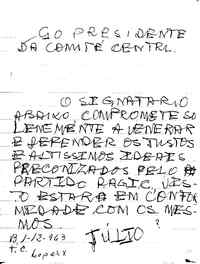 GO PRESIDENTE
DA COMITÉ CENTRL.
O SIGNATARIO
ABAIXO, COMPROMETE SO
LENEMENTE A VENERAR
E DEFENDER OS JUSTOS
E ALTISSIMOS IDEAIS
PRECONIZADOS PELO
PARTIDO PAGIC, VIS-
TO ESTARA EM CONFOR
MIDADE COM OS MES-
MOS.
JÚLIO
B, 1-12-963
T.C. Lopes